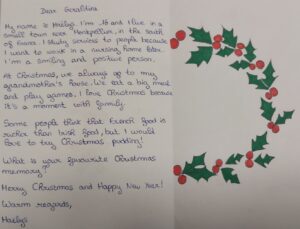 Dear Geraldine
My name is Maëlys. I'm 16 and I live in a
small town near Montpellier, in the south
of France. I study services to people because
I want to work in a nursing home later.
I'm a smiling and positive person.
At Christmas, we always go to my
grandmother's house. We eat a big meal
and play games. I love Christmas because
it's a moment with family.
Some people think that French food is
richer than Irish food, but I would
love to try Christmas pudding!
What is your favourite Christmas
memory?
Merry Christmas and Happy New Year!
Warm regards,
Maëlys